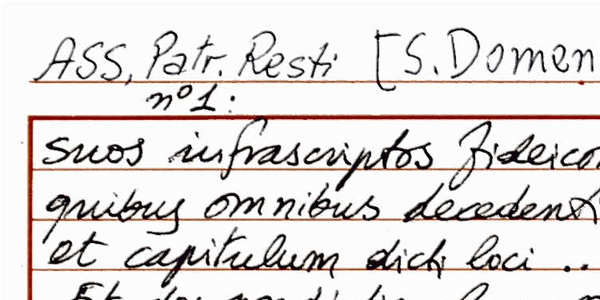 ASS, Patr. Resti [S. Domen
nº 1:
suos infrascriptos fideico
quibus omnibus decedent
et capitulum dicti loci ..
Et